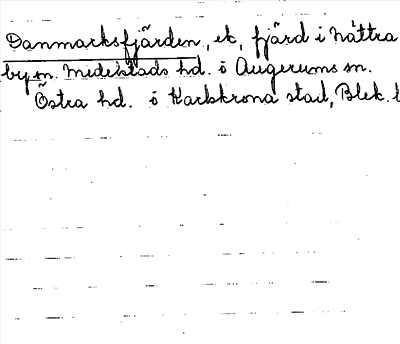 Danmarksfjärden, ek, fjärd i Nättra
by sn. Midelstads hd. i Augerums sn.
Östra hd. i Karlskrona stad, Blek. l